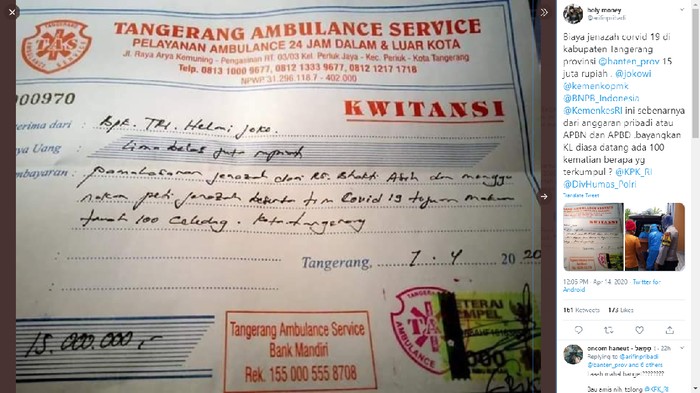 TANGERANG AMBULANCE SERVICE
PELAYANAN AMBULANCE 24 JAM DALAM & LUAR KOTA
Jl. Raya Arya Kemuning - Pengasinan RT. 03/03 Kel. Periuk Jaya - Kec. Periuk - Kota Tangerang
Telp. 0813 1000 9677, 0812 1333 9677, 0812 1217 1718
NPWP 31.296.118.7 - 402.000
TAS
000970
KWITANSI
erima dari : Bpk. TRI. Helmi joko.
ya Uang : Lima belas juta rupiah
mbayaran : pemakaman jenazah dari RS. Bhakti Asih dan menggu
nakan peti jenazah beserta tim Covid 19 tujuan makam
tanah 100 Ciledug. Kota tangerang
Tangerang, 7 - 4 20 20
15.000.000,-
Tangerang Ambulance Service
Bank Mandiri
Rek. 155 000 555 8708
TAS
ETERAI
EMPEL
000
holy money
@arifinpribadi
Biaya jenazah corvid 19 di
kabupaten Tangerang
provinsi @banten_prov 15
juta rupiah . @jokowi
@kemenkopmk
@BNPB_Indonesia
@KemenkesRI ini sebenarnya
dari anggaran pribadi atau
APBN dan APBD .bayangkan
KL diasa datang ada 100
kematian berapa yg
terkumpul ? @KPK_RI
@DivHumas_Polri
Translate Tweet
12:05 PM · Apr 14, 2020 · Twitter for
Android
161 Retweets 173 Likes
22h
Replying to @arifinpribadi
@banten_prov and 6 others
Bau amis nih..tolong @KPK_RI